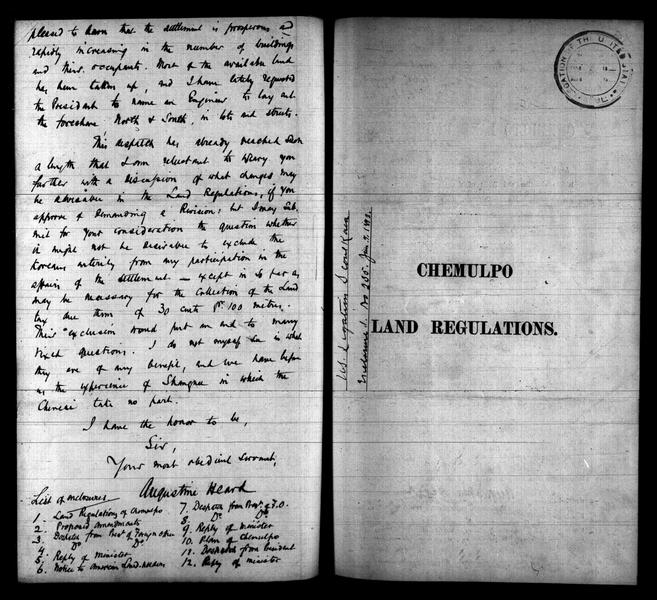 pleased to learn that the settlement is prosperous &
rapidly increasing in the number of buildings
and their occupants. Most of the available land
has been taken up, and I have lately requested
the President to name an Engineer to lay out
the foreshore North & South, in lots and streets.
This despatch has already reached such
a length that I am reluctant to weary you
further with a discussion of what changes may
be advisable in the Land Regulations, if you
approve of demanding a Revision; but I may sub-
mit for your consideration the question whether
it might not be desirable to exclude the
Koreans entirely from any participation in the
affairs of the settlement — except in so far as
may be necessary for the collection of the Land
tax one third of 30 cents pr. 100 metres.
Their exclusion would put an end to many
vexed questions. I do not myself see in what
they are of any benefit, and we have before
us the experience of Shanghai in which the
Chinese take no part.
I have the honor to be,
Sir,
Your most obedient servant,
Augustine Heard
List of enclosures
1. Land Regulations of Chemulpo
2. Proposed amendments
3. Despatch from Prest. of Foreign Office
4. Do Do
5. Reply of Minister
6. Notice to American Land-holders
7. Despatch from Prest. of F.O.
8. Do Do
9. Reply of Minister
10. Plan of Chemulpo
11. Despatch from President
12. Reply of Minister
U.S. Legation Seoul Korea
Enclosure 1. No 255. Jan.
CHEMULPO
LAND REGULATIONS.